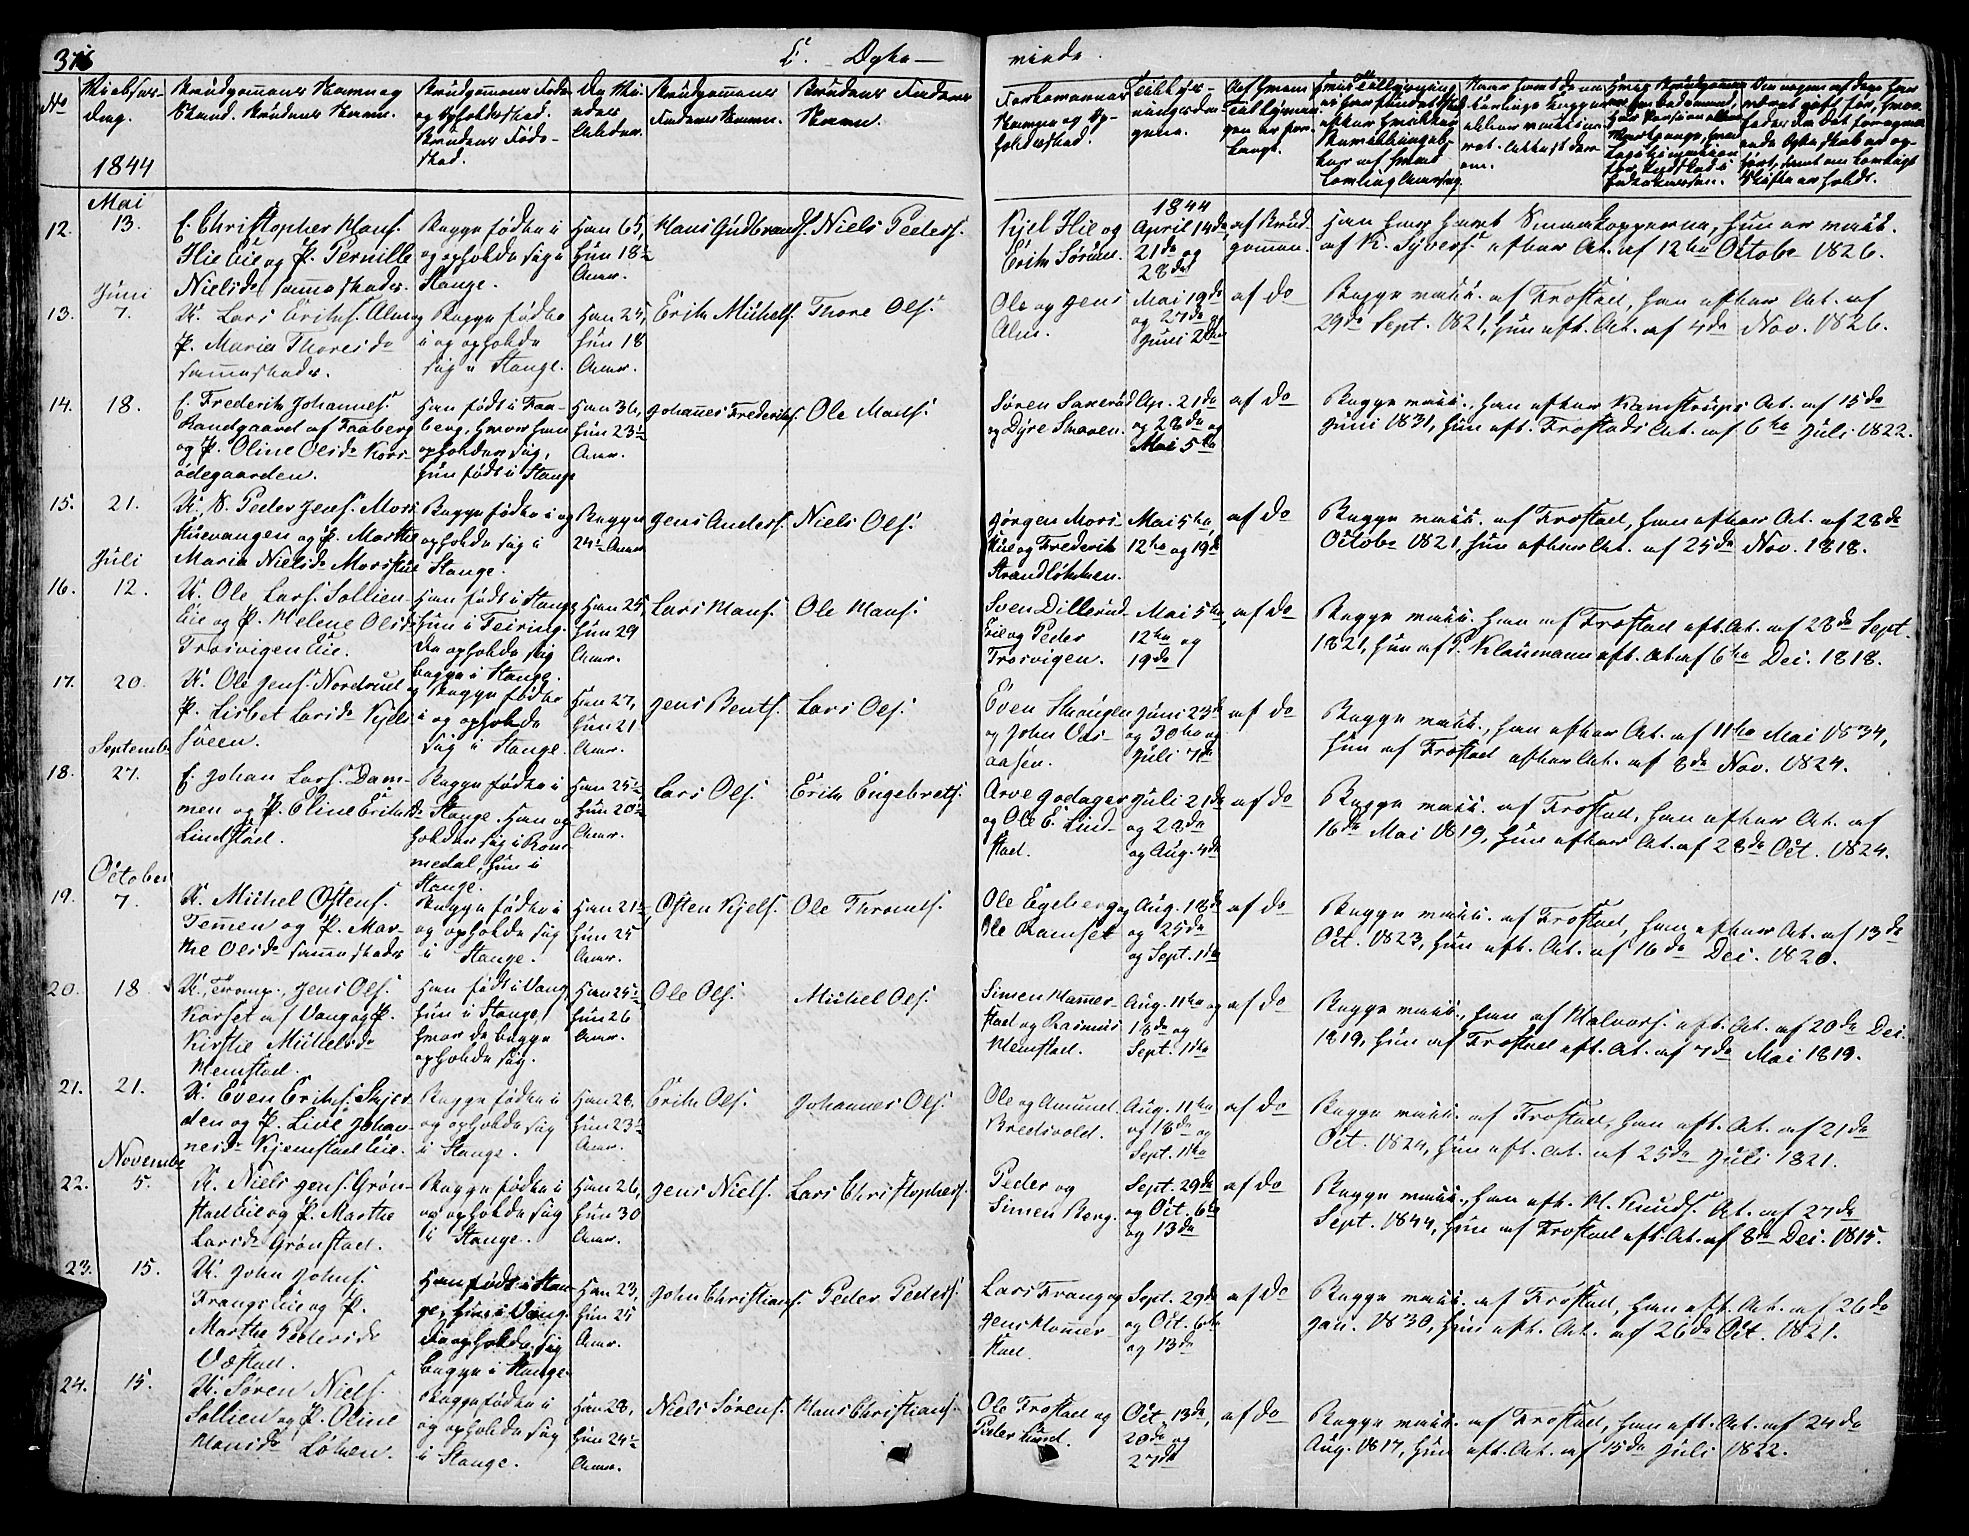 376
C. Ægte-
viede.
No
Vielses-
dag.
1844
Brudgommens Navn og
Stand. Brudens Navn.
Brudgommens Føde
og Opholdssted.
Brudens Føde-
sted.
Brudgommens
Faders Navn.
Brudens Faders
Navn.
Forlovernes
Navne og Op-
holdssted.
Mai
12.
13.
E. Christopher Hans.
Hie Eie og P. Pernille
Nielsdr sammesteds.
Begge fødte i
og opholde sig i
Stange.
Han 65,
Hun 18½
Aar.
Hans Gudbrands.
Niels Peders.
Kjel Hie og
Erik Sørum.
1844
April 14de,
21de og
28de
af Brud-
gommen.
Han har havt Smaakopperne, hun er vacc.
af K. Syvers. efter At. af 12te Octobr 1826.
Juni
13.
7.
U. Lars Eriks. Alm og
P. Maria Thoresdr
sammesteds.
Begge fødte
i og opholde
sig i Stange.
Han 25,
Hun 18
Aar.
Erik Michels.
Thore Ols.
Ole og Jens
Alm.
Mai 19de
og 27de og
Juni 2den
af do
Begge vacc. af Frostad, han efter At. af
29de Sept. 1821, hun eft. At. af 4de Nov. 1826.
14.
18.
E. Frederik Johannes.
Randgaard af Faaberg
og P. Oline Olsdr Kors-
ødegaarden.
Han født i Faa-
berg, hvor han
opholder sig,
Hun født i Stange
Han 36,
Hun 23½
Aar.
Johannes Frederiks.
Ole Mads.
Søren Saxerud
og Dyre Skoven.
Ap. 21de
og 28de og
Mai 5te
af do
Begge vacc., han efter Kamstrups At. af 15de
Juni 1831, hun eft. Frostads At. af 6te Juli 1822.
15.
21.
U. S. Peder Jens. Mors-
stuevangen og P. Marthe
Maria Nielsdr Morstue
Begge fødte i og
opholde sig i
Stange.
Begge
24½ Aar
Jens Anders.
Niels Ols.
Jørgen Mors-
tue og Frederik
Strandløkken.
Mai 5te,
12te og 19de
af do
Begge vacc. af Frostad, han efter At. af 28de
Octobr 1821, hun efter At. af 25de Nov. 1818.
Juli
16.
12.
U. Ole Lars. Sollien-
Eie og P. Helene Olsdr
Trosvigen Eie.
Han født i Stange
Hun i Feiring.
De opholde sig
begge i Stange.
Han 25,
Hun 29
Aar.
Lars Hans.
Ole Hans.
Sven Dillerud-
Eie og Peder
Trosvigen.
Mai 5te,
12te og
19de
af do
Begge vacc. Han af Frostad eft. At. af 28de Sept.
1821, hun af P. Klaumann eft. At. af 6te Dec. 1818.
17.
20.
U. Ole Jens. Nordrud og
P. Lisbet Larsdr Kjels-
sveen.
Begge fødte
i og opholde
sig i Stange.
Han 27,
Hun 21
Aar.
Jens Bents.
Lars Ols.
Even Skougen
og John Ous-
aasen.
Juni 23de
og 30te og
Juli 7de
af do
Begge vacc., han efter At. af 11te Mai 1834,
hun af Frostad efter At. af 8de Nov. 1824.
Septembr
18.
27.
E. Johan Lars. Dam-
men og P. Eline Eriksdr
Lindstad.
Begge fødte i
Stange. Han op-
holder sig i Rom-
medal, Hun i
Stange.
Han 25½
Hun 20½
Aar.
Lars Ols.
Erik Engebrets.
Arve Godager
og Ole E. Lind-
stad.
Juli 21de
og 28de
og Aug. 4de
af do
Begge vacc. af Frostad, han efter At. af
16de Mai 1819, hun efter At. af 28de Oct. 1824.
October
19.
7.
U. Michel Østens.
Temmen og P. Mar-
the Olsdr sammesteds
Begge fødte i
og opholde sig
i Stange.
Han 21½
Hun 25
Aar.
Østen Kjels.
Ole Thronds.
Ole Egeberg og
Ole Ramset
Aug. 18de
og 25de
og Sept. 1ste
af do
Begge vacc. af Frostad, han efter At. af 13de
Oct. 1823, hun eft. At. af 16de Dec. 1820.
20.
18.
U. Tromp. Jens Ols.
Korset af Vang og P.
Kirstie Michelsdr
Hemstad.
Han født i Vang,
Hun i Stange,
hvor de begge
opholde sig.
Han 25½
Hun 26
Aar.
Ole Ols.
Michel Ols.
Simen Hammer-
stad og Rasmus
Hemstad.
Aug. 11te og
18de og
Sept. 1ste
af do
Begge vacc., han af Halvors. eft. At. af 20de Dec.
1819, hun af Frostad eft. At. af 7de Mai 1819.
21.
21.
U. Even Eriks. Skjer-
den og P. Live Johan-
nesdr Kjemstad Eie.
Begge fødte i
og opholde sig
i Stange.
Han 28,
Hun 23½
Aar.
Erik Ols.
Johannes Ols.
Ole og Amund
Bredvold.
Aug. 11te
af 18de og
Sept. 11te
af do
Begge vacc. af Frostad, han eft. At. af 21de
Oct. 1824, hun eft. At. af 25de Juli 1821.
Novembr
22.
5.
U. Niels Jens. Grøn-
stad Eie og P. Marthe
Larsdr Grønstad.
Begge fødte i
og opholde sig
i Stange.
Han 26,
Hun 30
Aar.
Jens Niels.
Lars Christophers.
Peder og
Simen Berg.
Sept. 29de
og Oct. 6te
og 13de
af do
Begge vacc., han eft. H. Knuds. At. af 27de
Sept. 1844, hun af Frostad eft. At. af 8de Dec. 1815.
23.
15.
U. John Johns.
Frangs Eie og P.
Marthe Pedersdr
Væstad.
Han født i Stan-
ge, Hun i Vang.
De opholde sig
begge i Stange.
Han 23,
Hun 25
Aar.
John Christians.
Peder Peders.
Lars Frang og
Jens Hammer-
stad.
Sept. 29de
og Oct. 6te
og 13de
af do
Begge vacc. af Frostad, han eft. At. af 26de
Jan. 1830, hun eft. At. af 26de Oct. 1821.
24.
15.
U. Søren Niels.
Sollien og P. Oline
Hansdr Løken.
Begge fødte i
og opholde sig
i Stange.
Han 28,
Hun 24½
Aar.
Niels Sørens.
Hans Christians.
Ole Frostad og
Peder Lund.
Oct. 13de,
20de og
27de
af do
Begge vacc. af Frostad, han eft. At. af 24de
Aug. 1817, hun eft. At. af 15de Juli 1822.